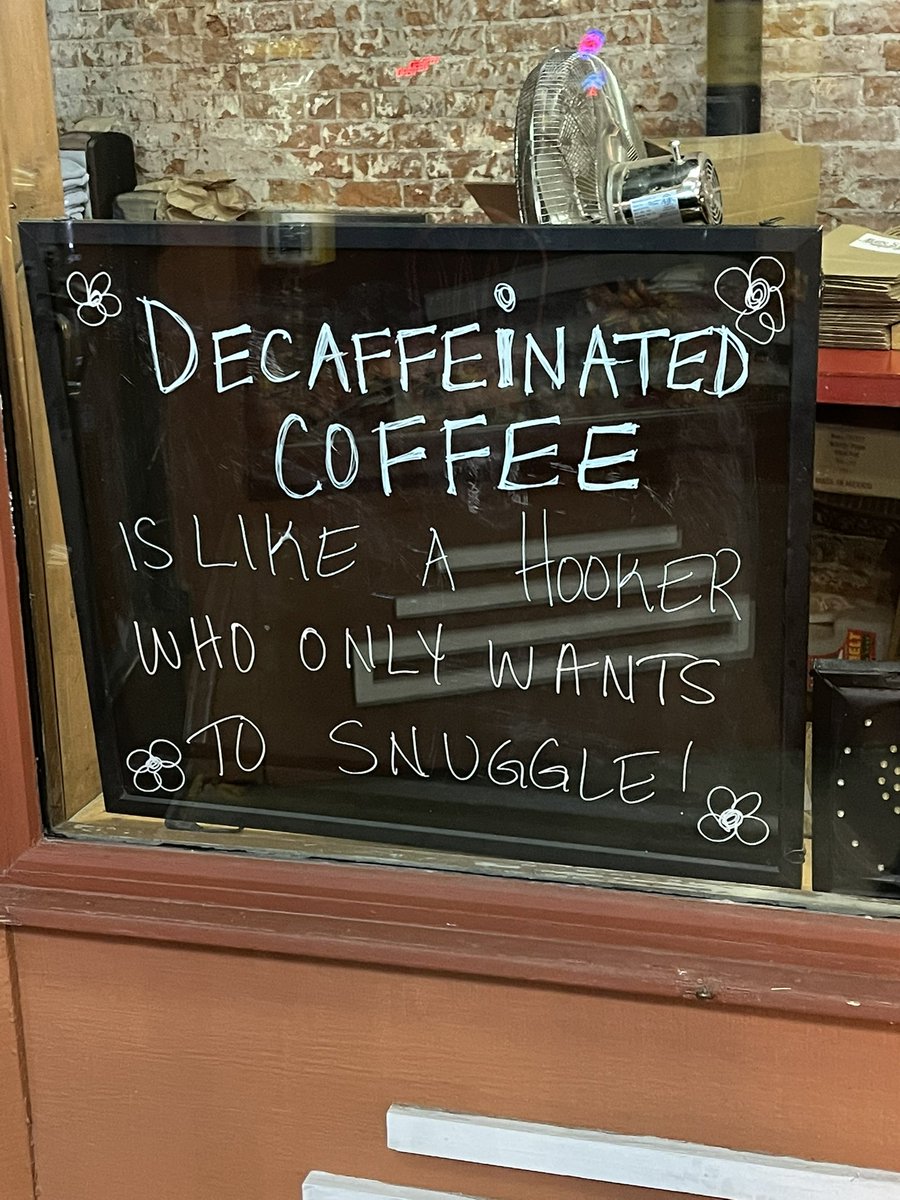 DECAFFEiNATED
COFFEE
IS LIKE A HOOKER
WHO ONLY WANTS
TO SNUGGLE!